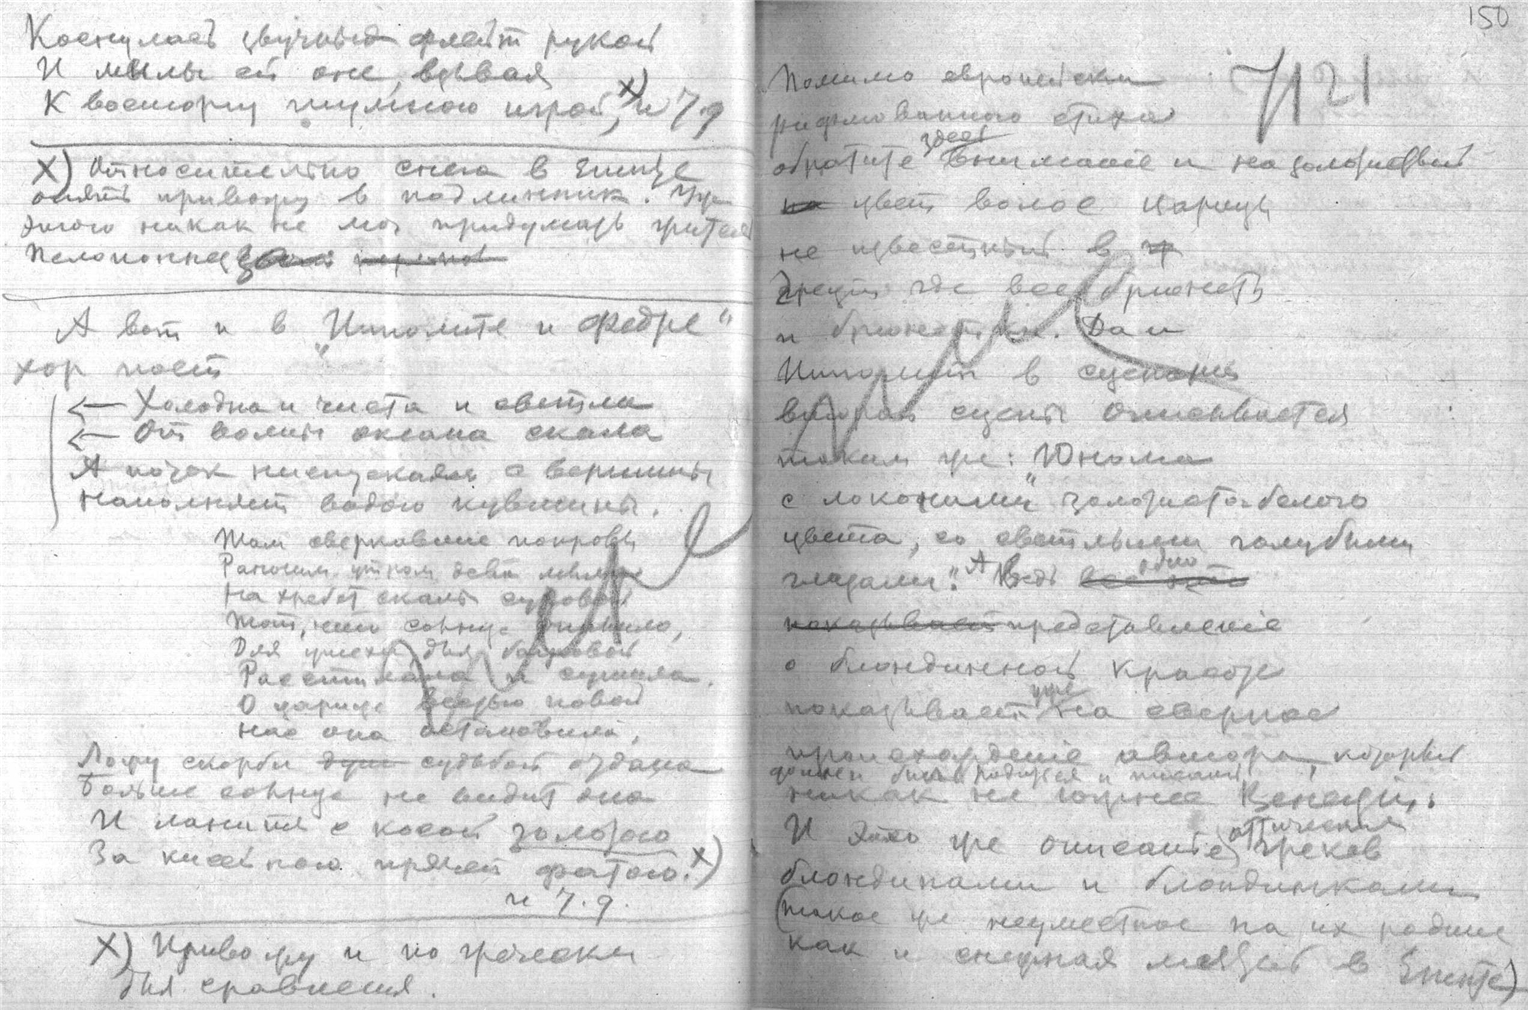 Коснулась звучных флейт рукой
И милы ей оне, взывая
К восторгу шумною игрой, х) и т.д
х) Относительно снега в Египте
опять привожу в подлиннике.
этого никак не мог придумать житель
Пелопоннеза
А вот и в "Ипполите и Федре"
хор поет
Холодна и чиста и светла
От волны океана скала
А поток ниспускаясь с вершины
наполняет водою кувшины.
Там сверкавшие покровы
Раношим утром дева мыла
На хребет скалы суровой
Тот, что солнце опалило,
Для утехи для багровой
Расстилала и сушила.
О царице вестью новой
нас она остановила,
Ложу скорби судьбой отдана
Больше солнца не видит она
И ланиты с косой золотою
За кисейною прячет фатою. х)
и т.д.
х) Привожу и по гречески
для сравнения.
150
7/121
Помимо европейски
рифмованного стиха
обратите здесь внимание и на золотистый
цвет волос царицы
не известный в
Греции где все брюнеты
и брюнетки. Да и
Ипполит в сценарии
второй сцены описывается
таким же: "Юноша
с локонами золотисто-белого
цвета, со светлыми голубыми
глазами". А ведь одно
представление
о блондинной красоте
показывает уже на северное
происхождение автора, который
должен был родиться и писать
никак не южнее Венеции.
И это же описание аттических греков
блондинами и блондинками
(такое же неуместное на их родине
как и снежная мятель в Египте)